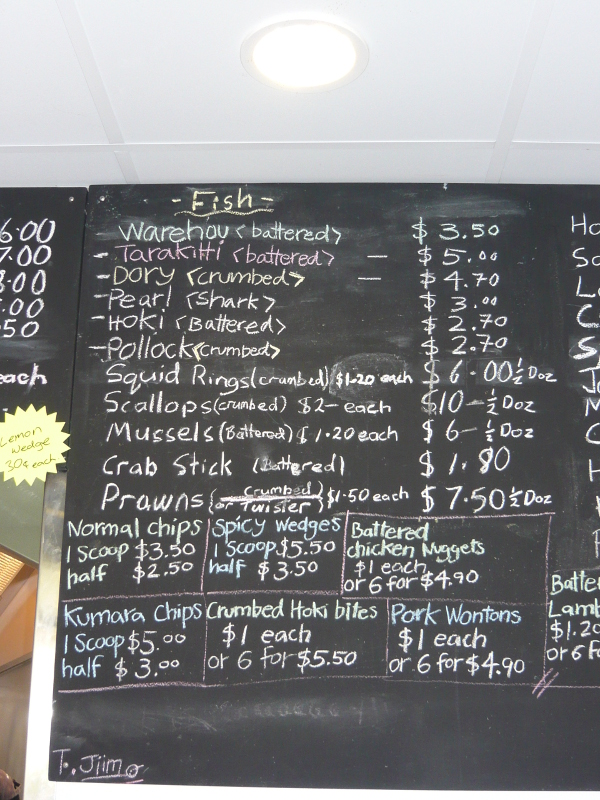 - Fish -
Warehou <battered> $3.50
- Tarakitti <battered> — $5.00
- Dory <crumbed> — $4.70
- Pearl <shark> $3.00
- Hoki <Battered> $2.70
- Pollock <crumbed> $2.70
Squid Rings (crumbed) $1.20 each $6.00 ½ Doz
Scallops (crumbed) $2- each $10- ½ Doz
Mussels (Battered) $1.20 each $6- ½ Doz
Crab Stick (Battered) $1.80
Prawns (crumbed or twister) $1.50 each $7.50 ½ Doz
Normal chips
1 Scoop $3.50
half $2.50
Spicy Wedges
1 Scoop $5.50
half $3.50
Battered
chicken Nuggets
$1 each
or 6 for $4.90
Kumara Chips
1 Scoop $5.00
half $3.00
Crumbed Hoki bites
$1 each
or 6 for $5.50
Pork Wontons
$1 each
or 6 for $4.90
T. Jiim
6.00
7.00
8.00
.00
.50
each
Lemon
wedge
30¢ each
Ho
So
L
C
S
J
M
C
H
Batte
Lamb
$1.20
or 6 fo